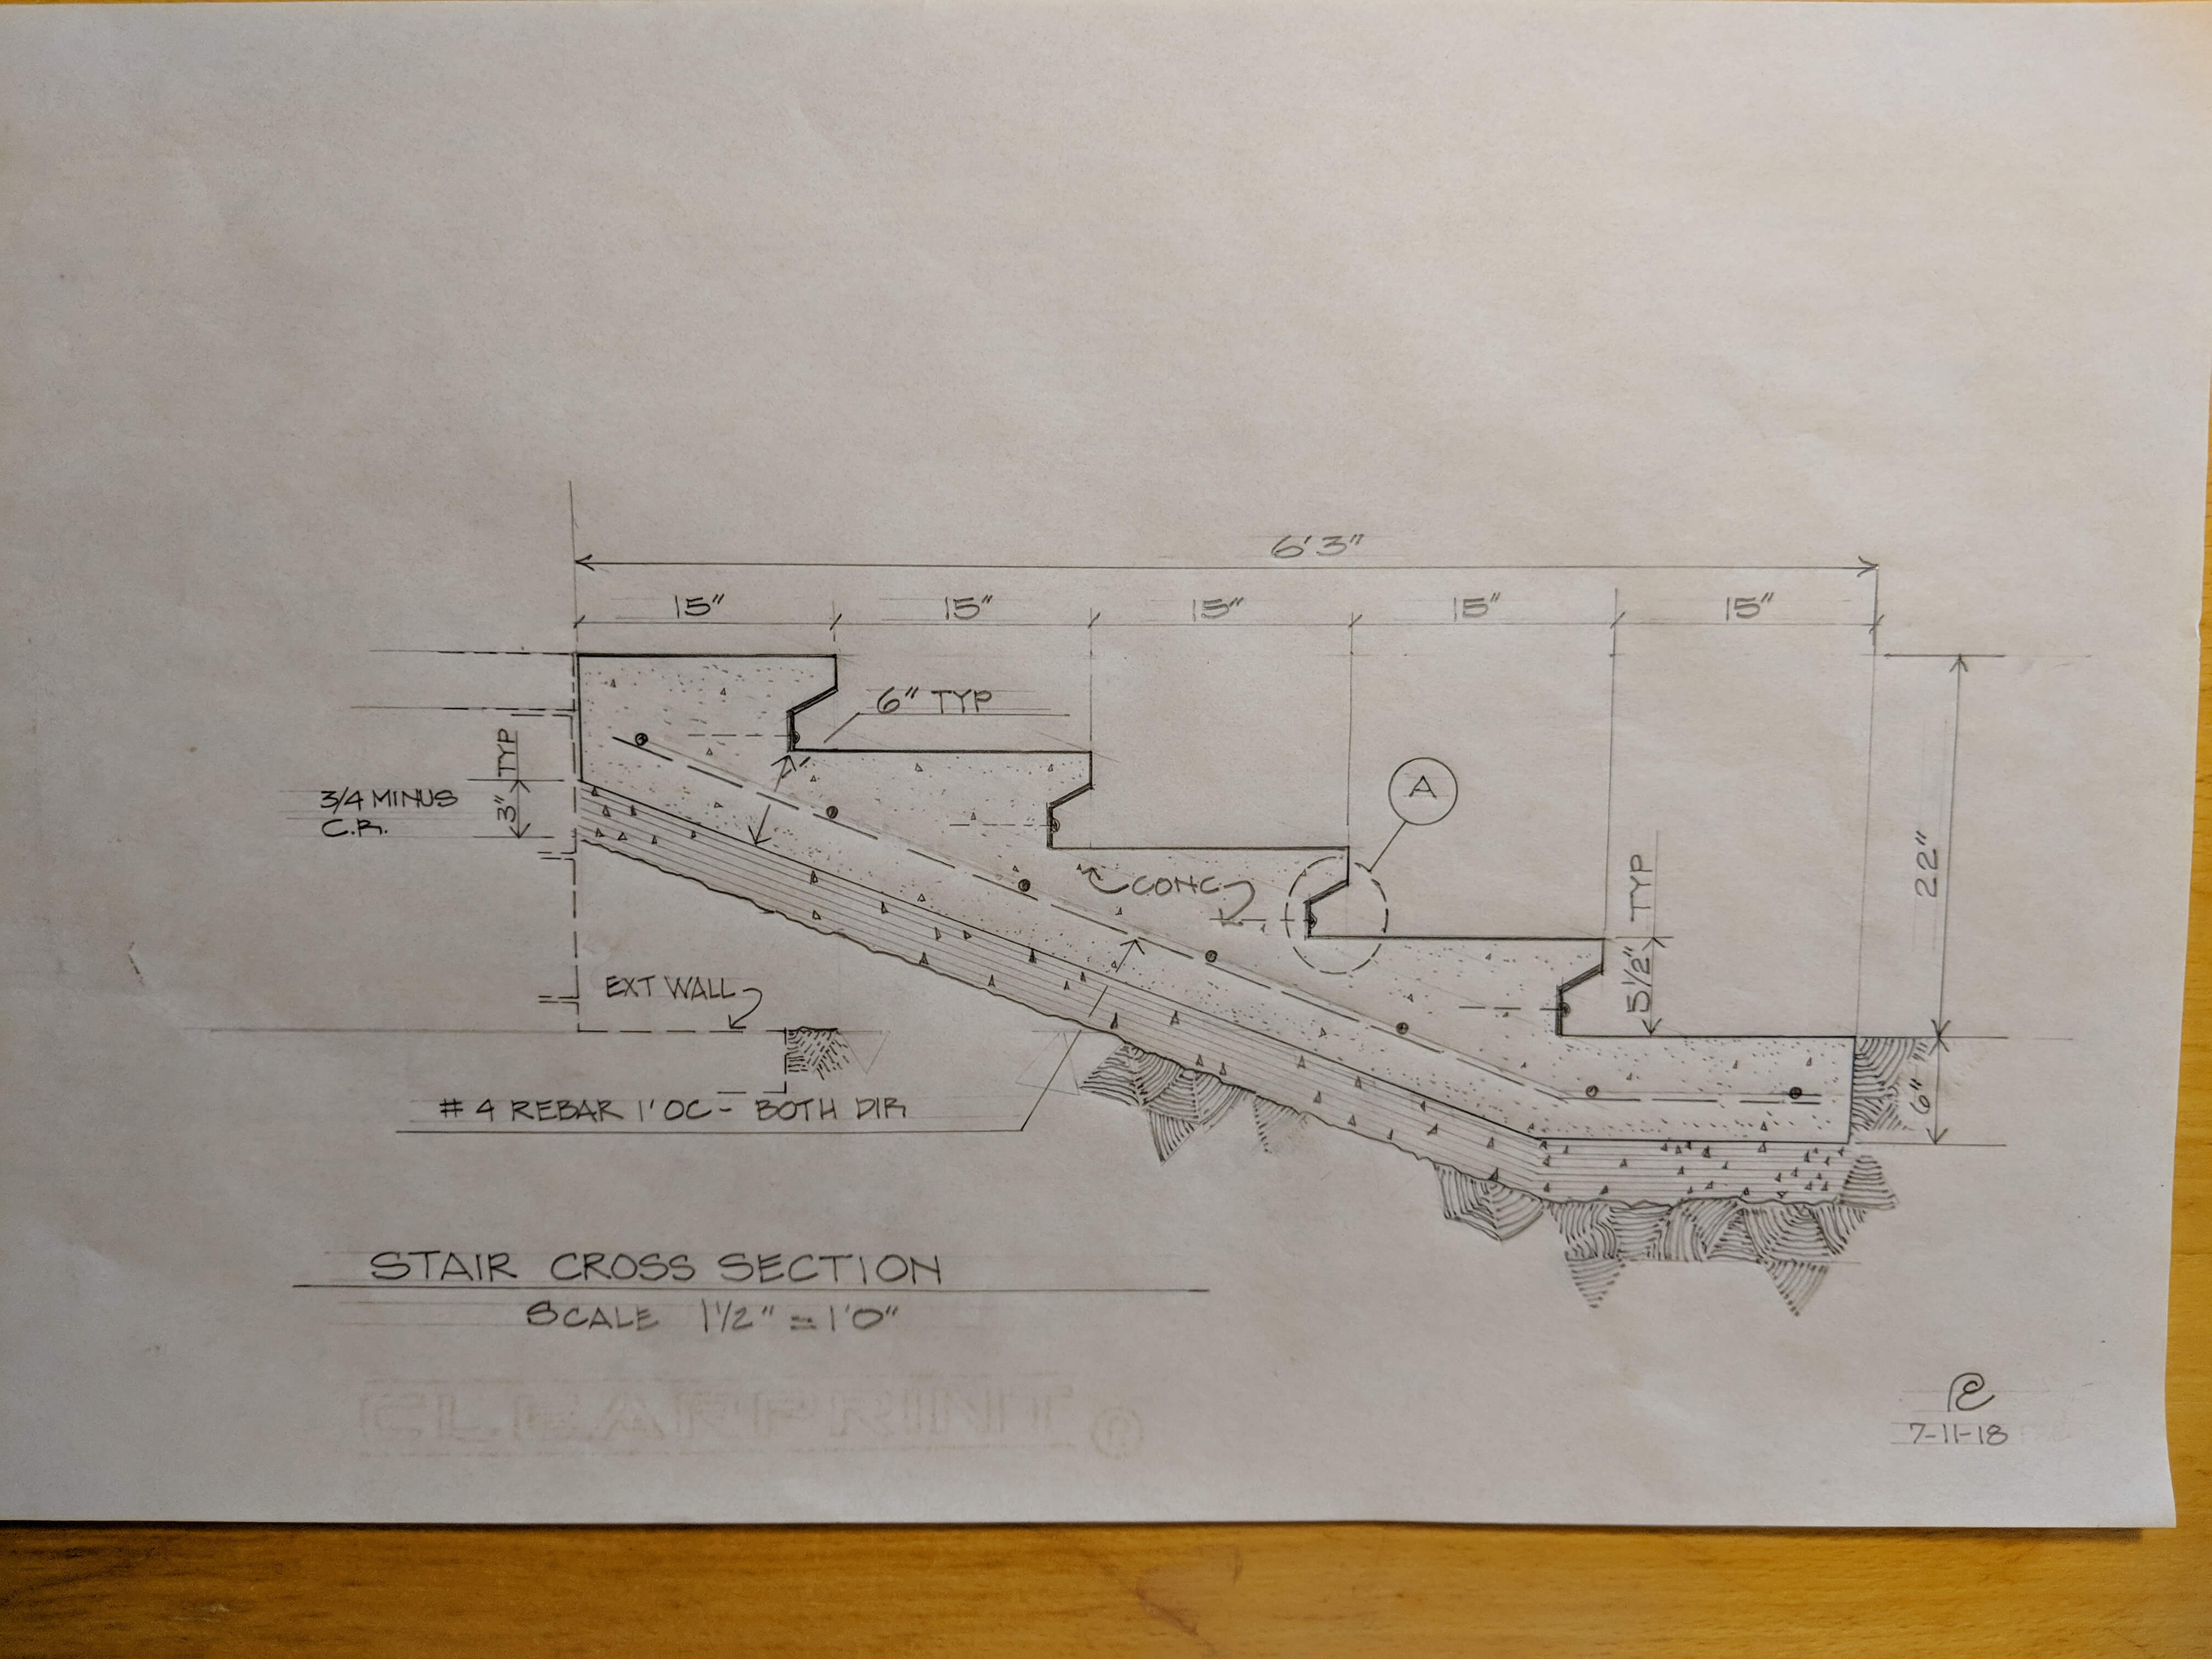 6'3"
15" 15" 15" 15" 15"
6" TYP
TYP
3"
3/4 MINUS
C.R.
A
CONC
5 1/2" TYP
22"
6"
EXT WALL
# 4 REBAR 1' OC - BOTH DIR
STAIR CROSS SECTION
SCALE 1 1/2" = 1'0"
7-11-18